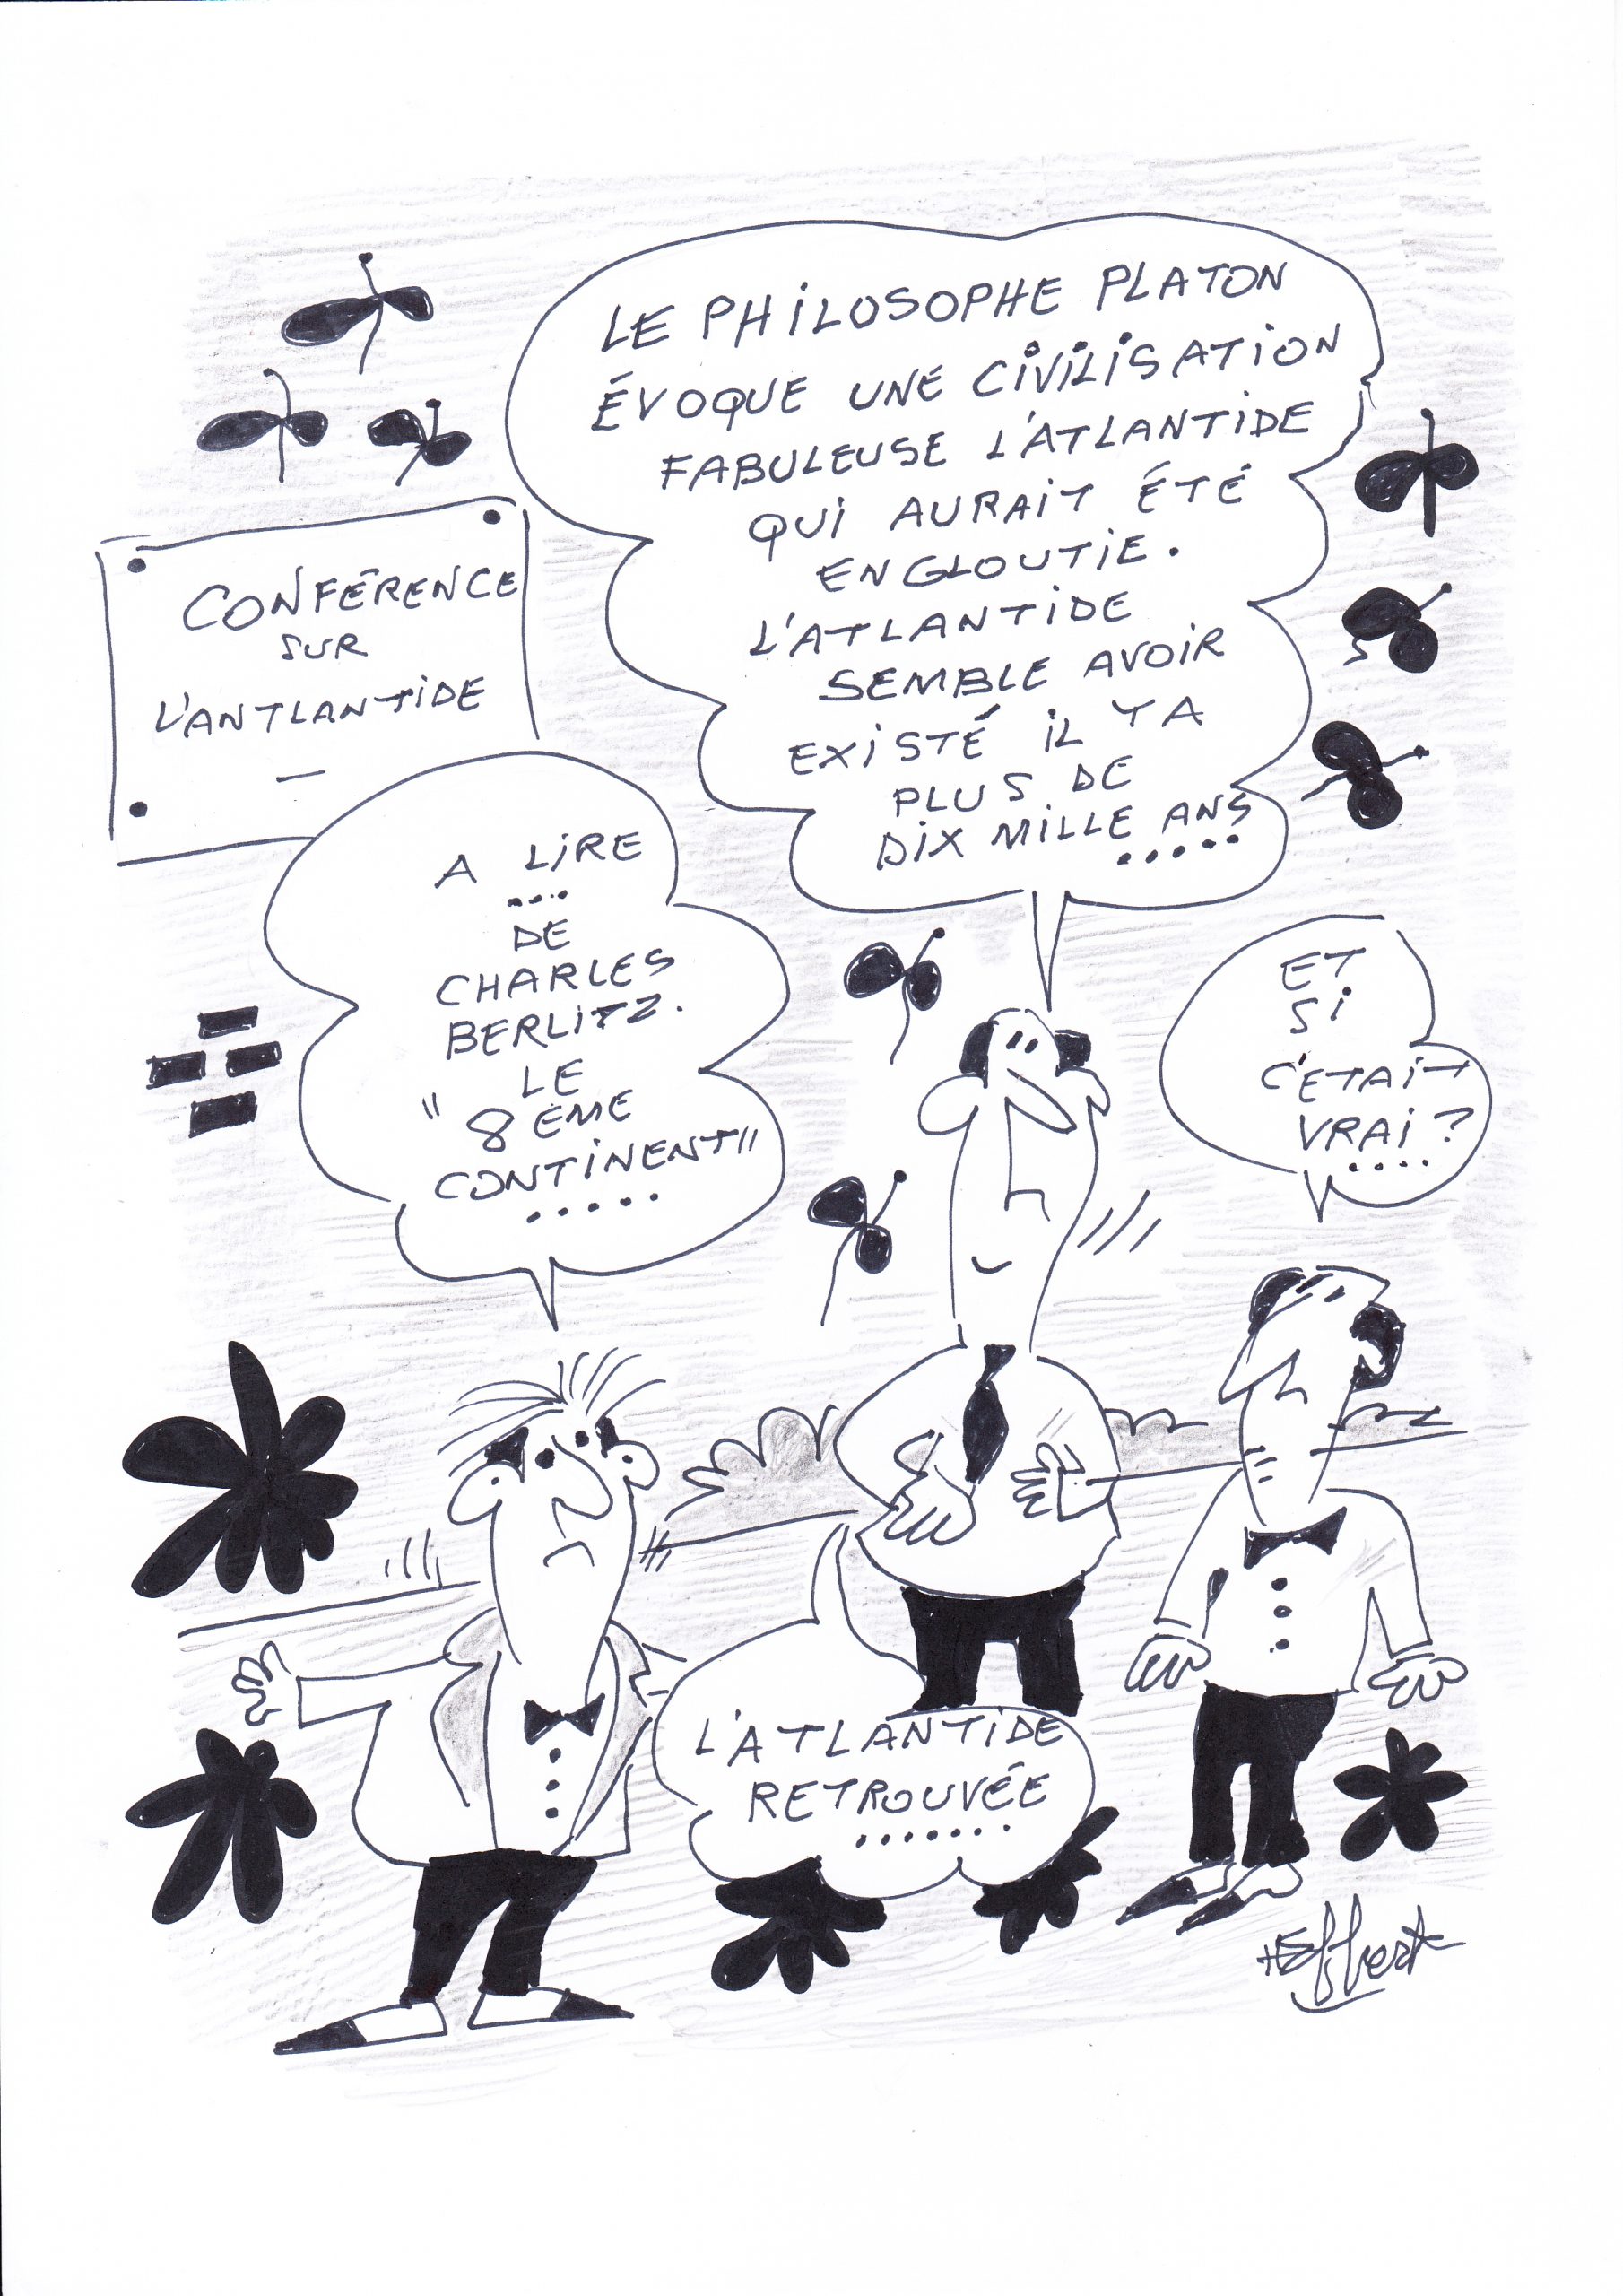 LE PHILOSOPHE PLATON
ÉVOQUE UNE CIVILISATION
FABULEUSE L'ATLANTIDE
QUI AURAIT ÉTÉ
ENGLOUTIE.
L'ATLANTIDE
SEMBLE AVOIR
EXISTÉ IL Y A
PLUS DE
DIX MILLE ANS
.....
CONFÉRENCE
SUR
L'ANTLANTIDE
—
A LIRE
....
DE
CHARLES
BERLITZ.
LE
" 8 EME
CONTINENT"
.....
ET
SI
C'ETAIT
VRAI ?
....
L'ATLANTIDE
RETROUVÉE
.......